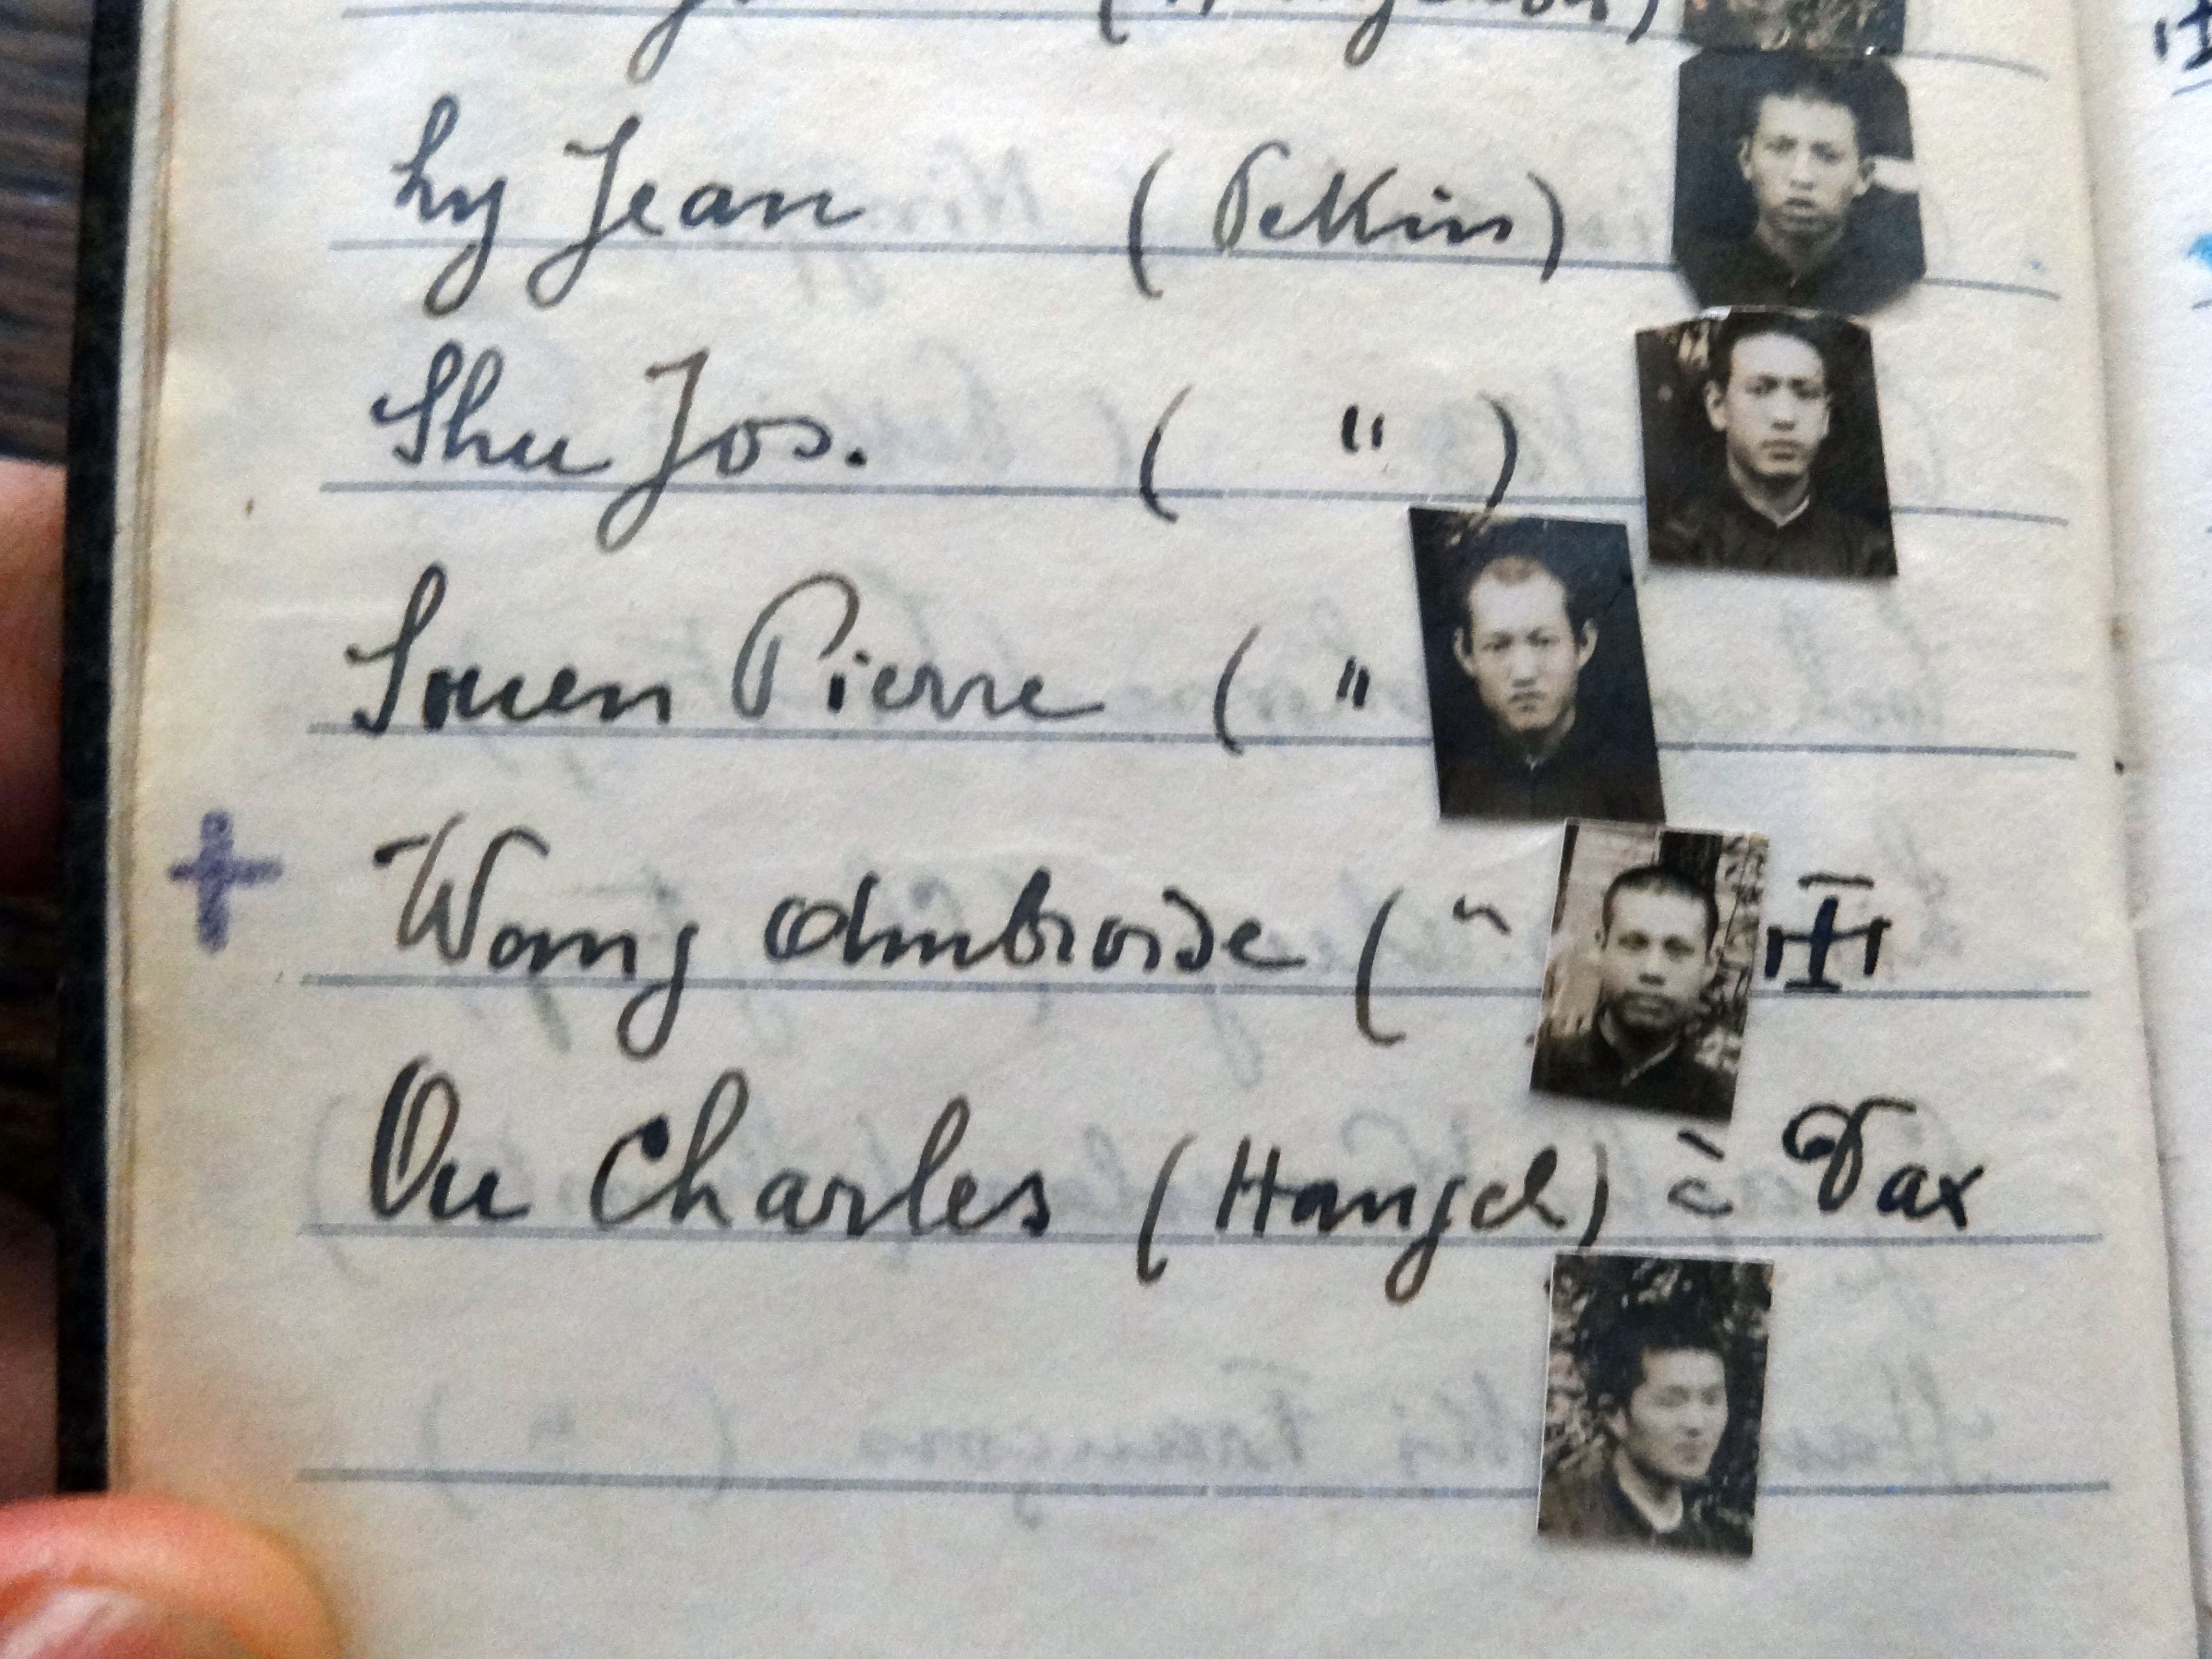 Ly Jean (Pekin)
Shu Jos. ( " )
Souen Pierre ( "
+ Wang Ambroise ( "
Ou Charles (Hangch) à Dax